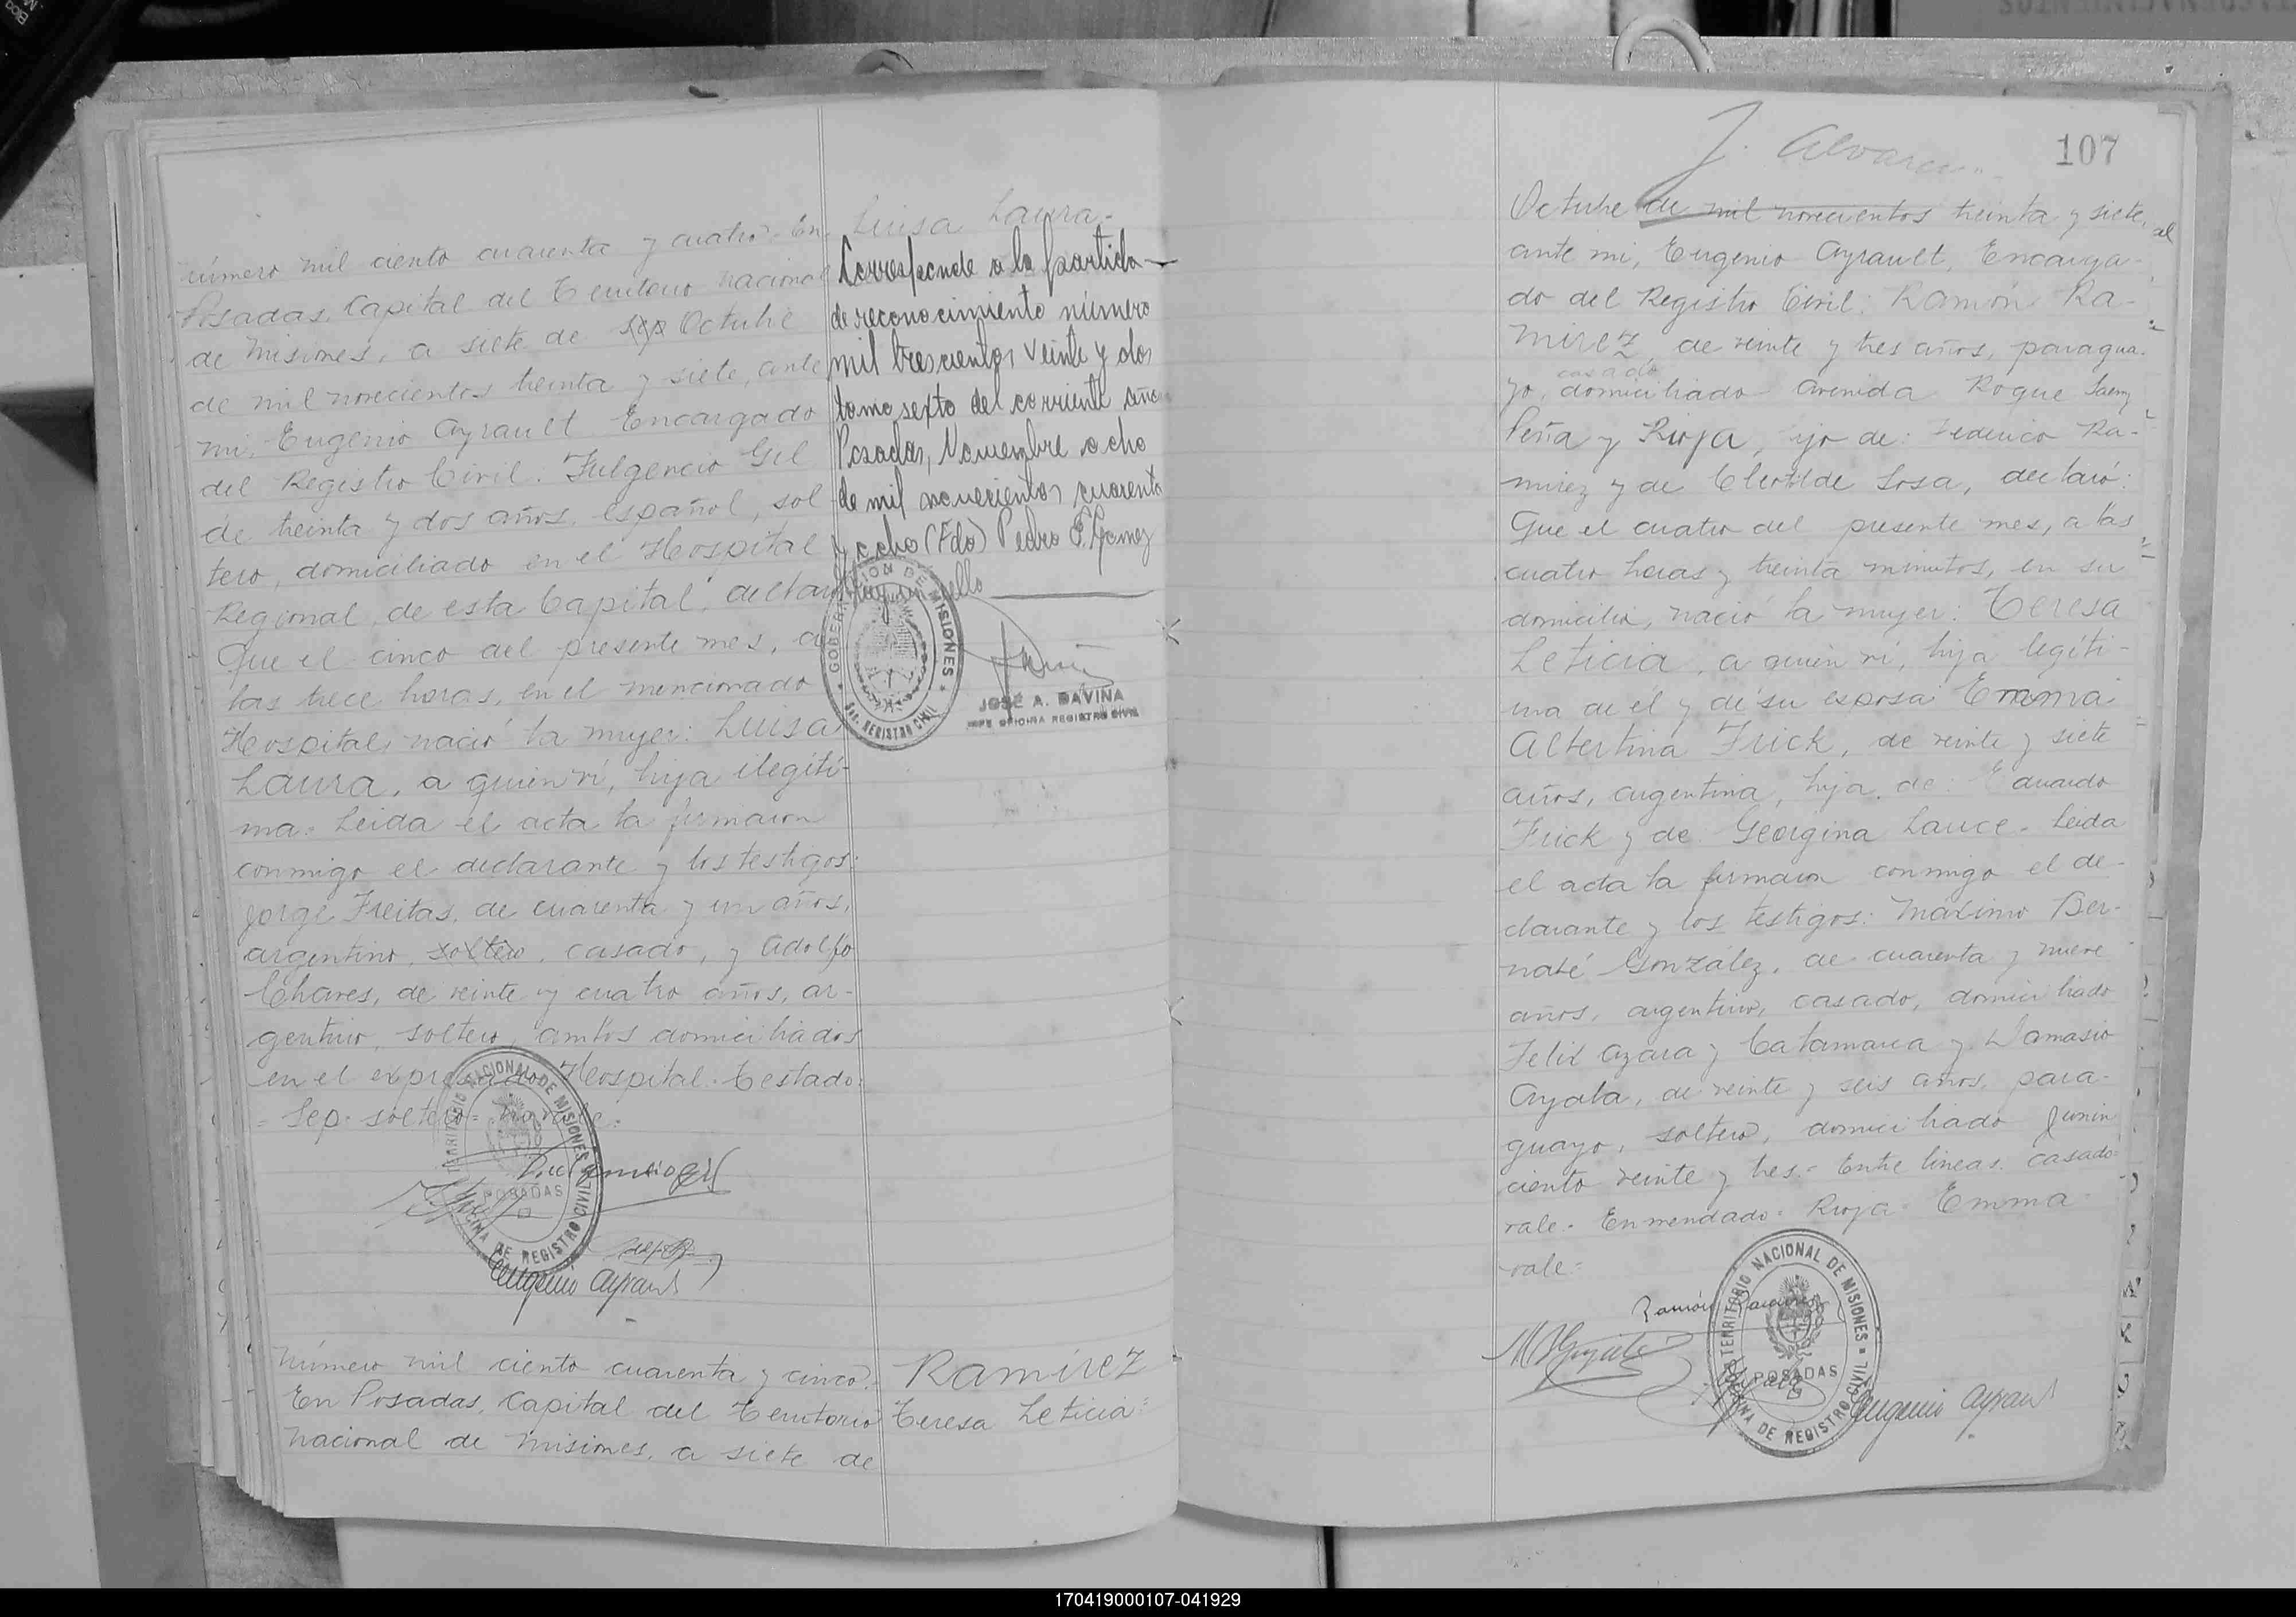 número mil ciento cuarenta y cuatro. En
Posadas, Capital del Territorio Nacional
de Misiones, a siete de Sep Octubre
de mil novecientos treinta y siete, ante
mi, Eugenio Ayrault Encargado
del Registro Civil: Fulgencio Gil
de treinta y dos años, español, sol
tero, domiciliado en el Hospital
Regional, de esta Capital, declaró
Que el cinco del presente mes, a
las trece horas, en el mencionado
Hospital, nació la mujer: Luisa
Laura, a quien vi, hija ilegíti-
ma. Leida el acta la firmaron
conmigo el declarante y los testigos:
Jorge Freitas, de cuarenta y un años,
argentino, soltero, casado, y Adolfo
Chaves, de veinte y cuatro años, ar-
gentino, soltero, ambos domiciliados
en el expresado Hospital. Testado:
= Sep. soltero = no vale =
TERRITORIO NACIONAL DE MISIONES
POSADAS
OFICINA DE REGISTRO CIVIL
Fulgencio Gil
Eugenio Ayrault
Luisa Laura.-
Corresponde a la partida
de reconocimiento número
mil trescientos veinte y dos
tomo sexto del corriente año
Posadas, Noviembre ocho
de mil novecientos cuarenta
y ocho (Fdo) Pedro E. Gomez
Hay un sello
GOBERNACION DE MISIONES
REGISTRO CIVIL
JOSÉ A. DAVIÑA
JEFE OFICINA REGISTRO CIVIL
Número mil ciento cuarenta y cinco.
En Posadas, Capital del Territorio
Nacional de Misiones, a siete de
Ramírez
Teresa Leticia =
J. Alvarez
107
Octubre de mil novecientos treinta y siete,
ante mi, Eugenio Ayrault, Encarga-
do del Registro Civil: Ramón Ra-
mirez, de veinte y tres años, paragua-
casado
yo, domiciliado Avenida Roque Saenz
Peña y Rioja, ijo de: Federico Ra-
mirez y de Clotilde Sosa, declaró:
Que el cuatro del presente mes, a las
cuatro horas y treinta minutos, en su
domicilio, nació la mujer: Teresa
Leticia, a quien vi, hija legíti-
ma de él y de su esposa Emma
Albertina Frick, de veinte y siete
años, argentina, hija de: Eduardo
Frick y de Georgina Lauce. Leida
el acta la firmaron conmigo el de-
clarante y los testigos: Máximo Ber-
nabé González, de cuarenta y nueve
años, argentino, casado, domiciliado
Felix Azara y Catamarca y Damasio
Ayala, de veinte y seis años, para-
guayo, soltero, domiciliado Junin
ciento veinte y tres.= Entre lineas. casado=
vale. Enmendado = Rioja = Emma
vale =
Ramón Ramirez
TERRITORIO NACIONAL DE MISIONES
POSADAS
OFICINA DE REGISTRO CIVIL
Eugenio Ayrault
170419000107-041929